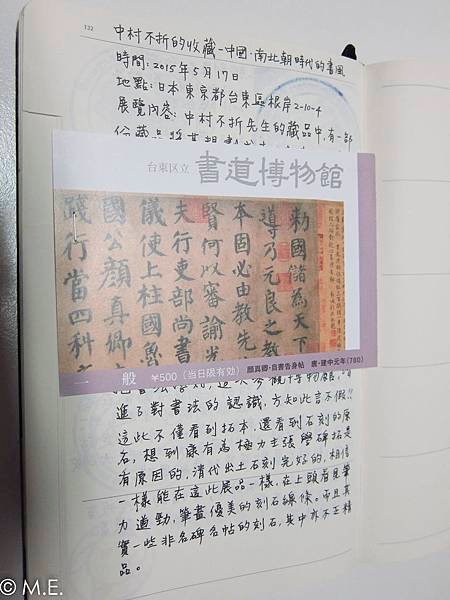 132
中村不折的收藏-中國·南北朝時代的書風
時間:2015年5月17日
地點:日本東京都台東區根岸2-10-4
展覽內容: 中村不折先生的藏品中,有一部
份藏品將其
台東区立 書道博物館
勅國儲為天下
導乃元良之教
本固必由教先
賢何以審諭光
夫行吏部尚書
儀使上柱國魯
國公顏真卿
踐行當四科
一般 ¥500(当日限有効) 顔真卿・自書告身帖 唐・建中元年(780)
進了對書法的認識,方知此言不假!!
這些不僅看到拓本,還看到石刻的原
石,想到康有為極力主張學碑拓是
有原因的,清代出土石刻完好的,相信
一樣能在這此展品一樣,在上頭看見筆
力遒勁,筆畫優美的刻石線條。而且其
實一些非名碑名帖的刻石,其中亦不乏精
品。
© M.E.